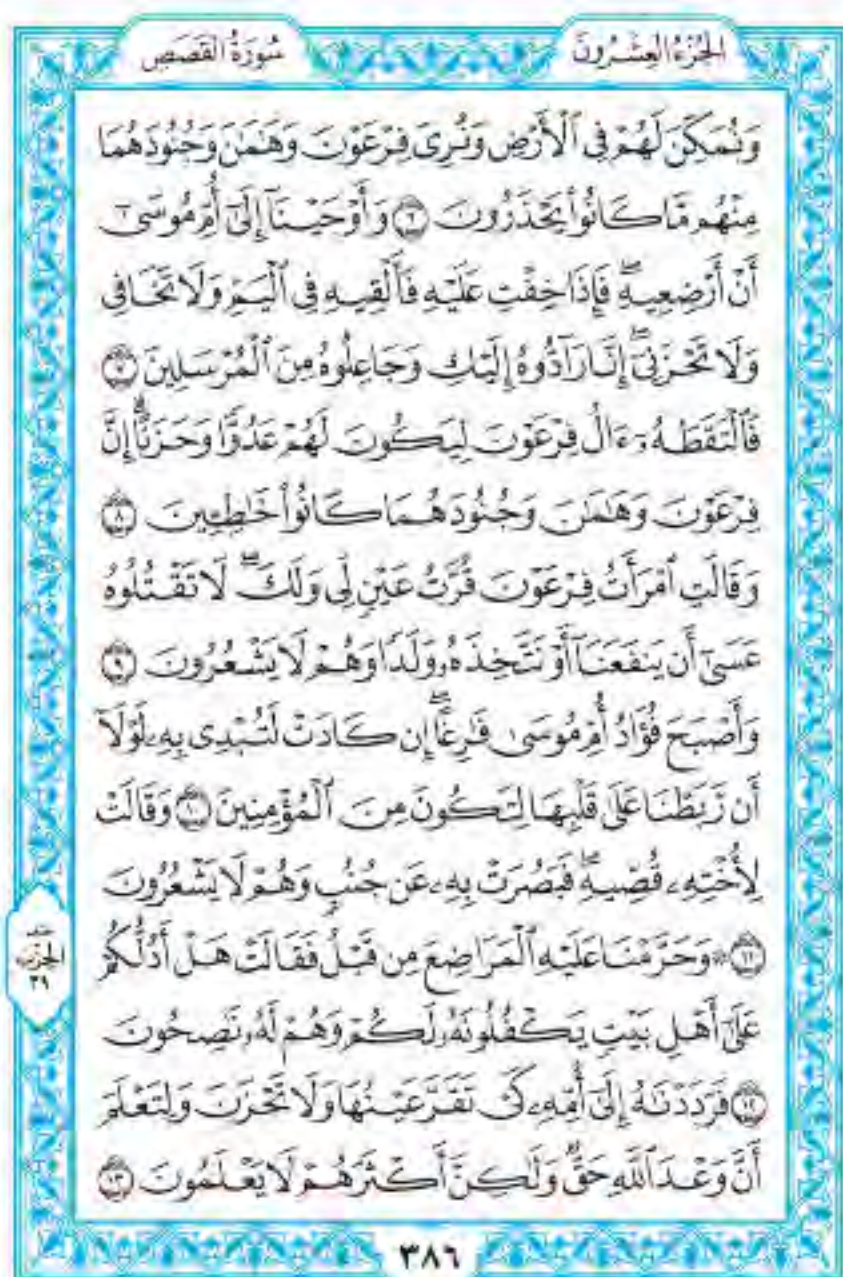 الجُزْءُ العِشْرُونَ
سُورَةُ القَصَصِ
وَنُمَكِّنَ لَهُمْ فِي ٱلْأَرْضِ وَنُرِيَ فِرْعَوْنَ وَهَٰمَٰنَ وَجُنُودَهُمَا
مِنْهُم مَّا كَانُوا۟ يَحْذَرُونَ ٦ وَأَوْحَيْنَآ إِلَىٰٓ أُمِّ مُوسَىٰٓ
أَنْ أَرْضِعِيهِ ۖ فَإِذَا خِفْتِ عَلَيْهِ فَأَلْقِيهِ فِي ٱلْيَمِّ وَلَا تَخَافِي
وَلَا تَحْزَنِيٓ ۖ إِنَّا رَآدُّوهُ إِلَيْكِ وَجَاعِلُوهُ مِنَ ٱلْمُرْسَلِينَ ٧
فَٱلْتَقَطَهُۥٓ ءَالُ فِرْعَوْنَ لِيَكُونَ لَهُمْ عَدُوًّا وَحَزَنًا ۗ إِنَّ
فِرْعَوْنَ وَهَٰمَٰنَ وَجُنُودَهُمَا كَانُوا۟ خَٰطِـِٔينَ ٨
وَقَالَتِ ٱمْرَأَتُ فِرْعَوْنَ قُرَّتُ عَيْنٍ لِّي وَلَكَ ۖ لَا تَقْتُلُوهُ
عَسَىٰٓ أَن يَنفَعَنَآ أَوْ نَتَّخِذَهُۥ وَلَدًا وَهُمْ لَا يَشْعُرُونَ ٩
وَأَصْبَحَ فُؤَادُ أُمِّ مُوسَىٰ فَٰرِغًا ۖ إِن كَادَتْ لَتُبْدِي بِهِۦ لَوْلَآ
أَن رَّبَطْنَا عَلَىٰ قَلْبِهَا لِتَكُونَ مِنَ ٱلْمُؤْمِنِينَ ١٠ وَقَالَتْ
لِأُخْتِهِۦ قُصِّيهِ ۖ فَبَصُرَتْ بِهِۦ عَن جُنُبٍ وَهُمْ لَا يَشْعُرُونَ
١١ ۞ وَحَرَّمْنَا عَلَيْهِ ٱلْمَرَاضِعَ مِن قَبْلُ فَقَالَتْ هَلْ أَدُلُّكُمْ
عَلَىٰٓ أَهْلِ بَيْتٍ يَكْفُلُونَهُۥ لَكُمْ وَهُمْ لَهُۥ نَٰصِحُونَ
١٢ فَرَدَدْنَٰهُ إِلَىٰٓ أُمِّهِۦ كَيْ تَقَرَّ عَيْنُهَا وَلَا تَحْزَنَ وَلِتَعْلَمَ
أَنَّ وَعْدَ ٱللَّهِ حَقٌّ وَلَٰكِنَّ أَكْثَرَهُمْ لَا يَعْلَمُونَ ١٣
الحِزْب
٣٩
٣٨٦